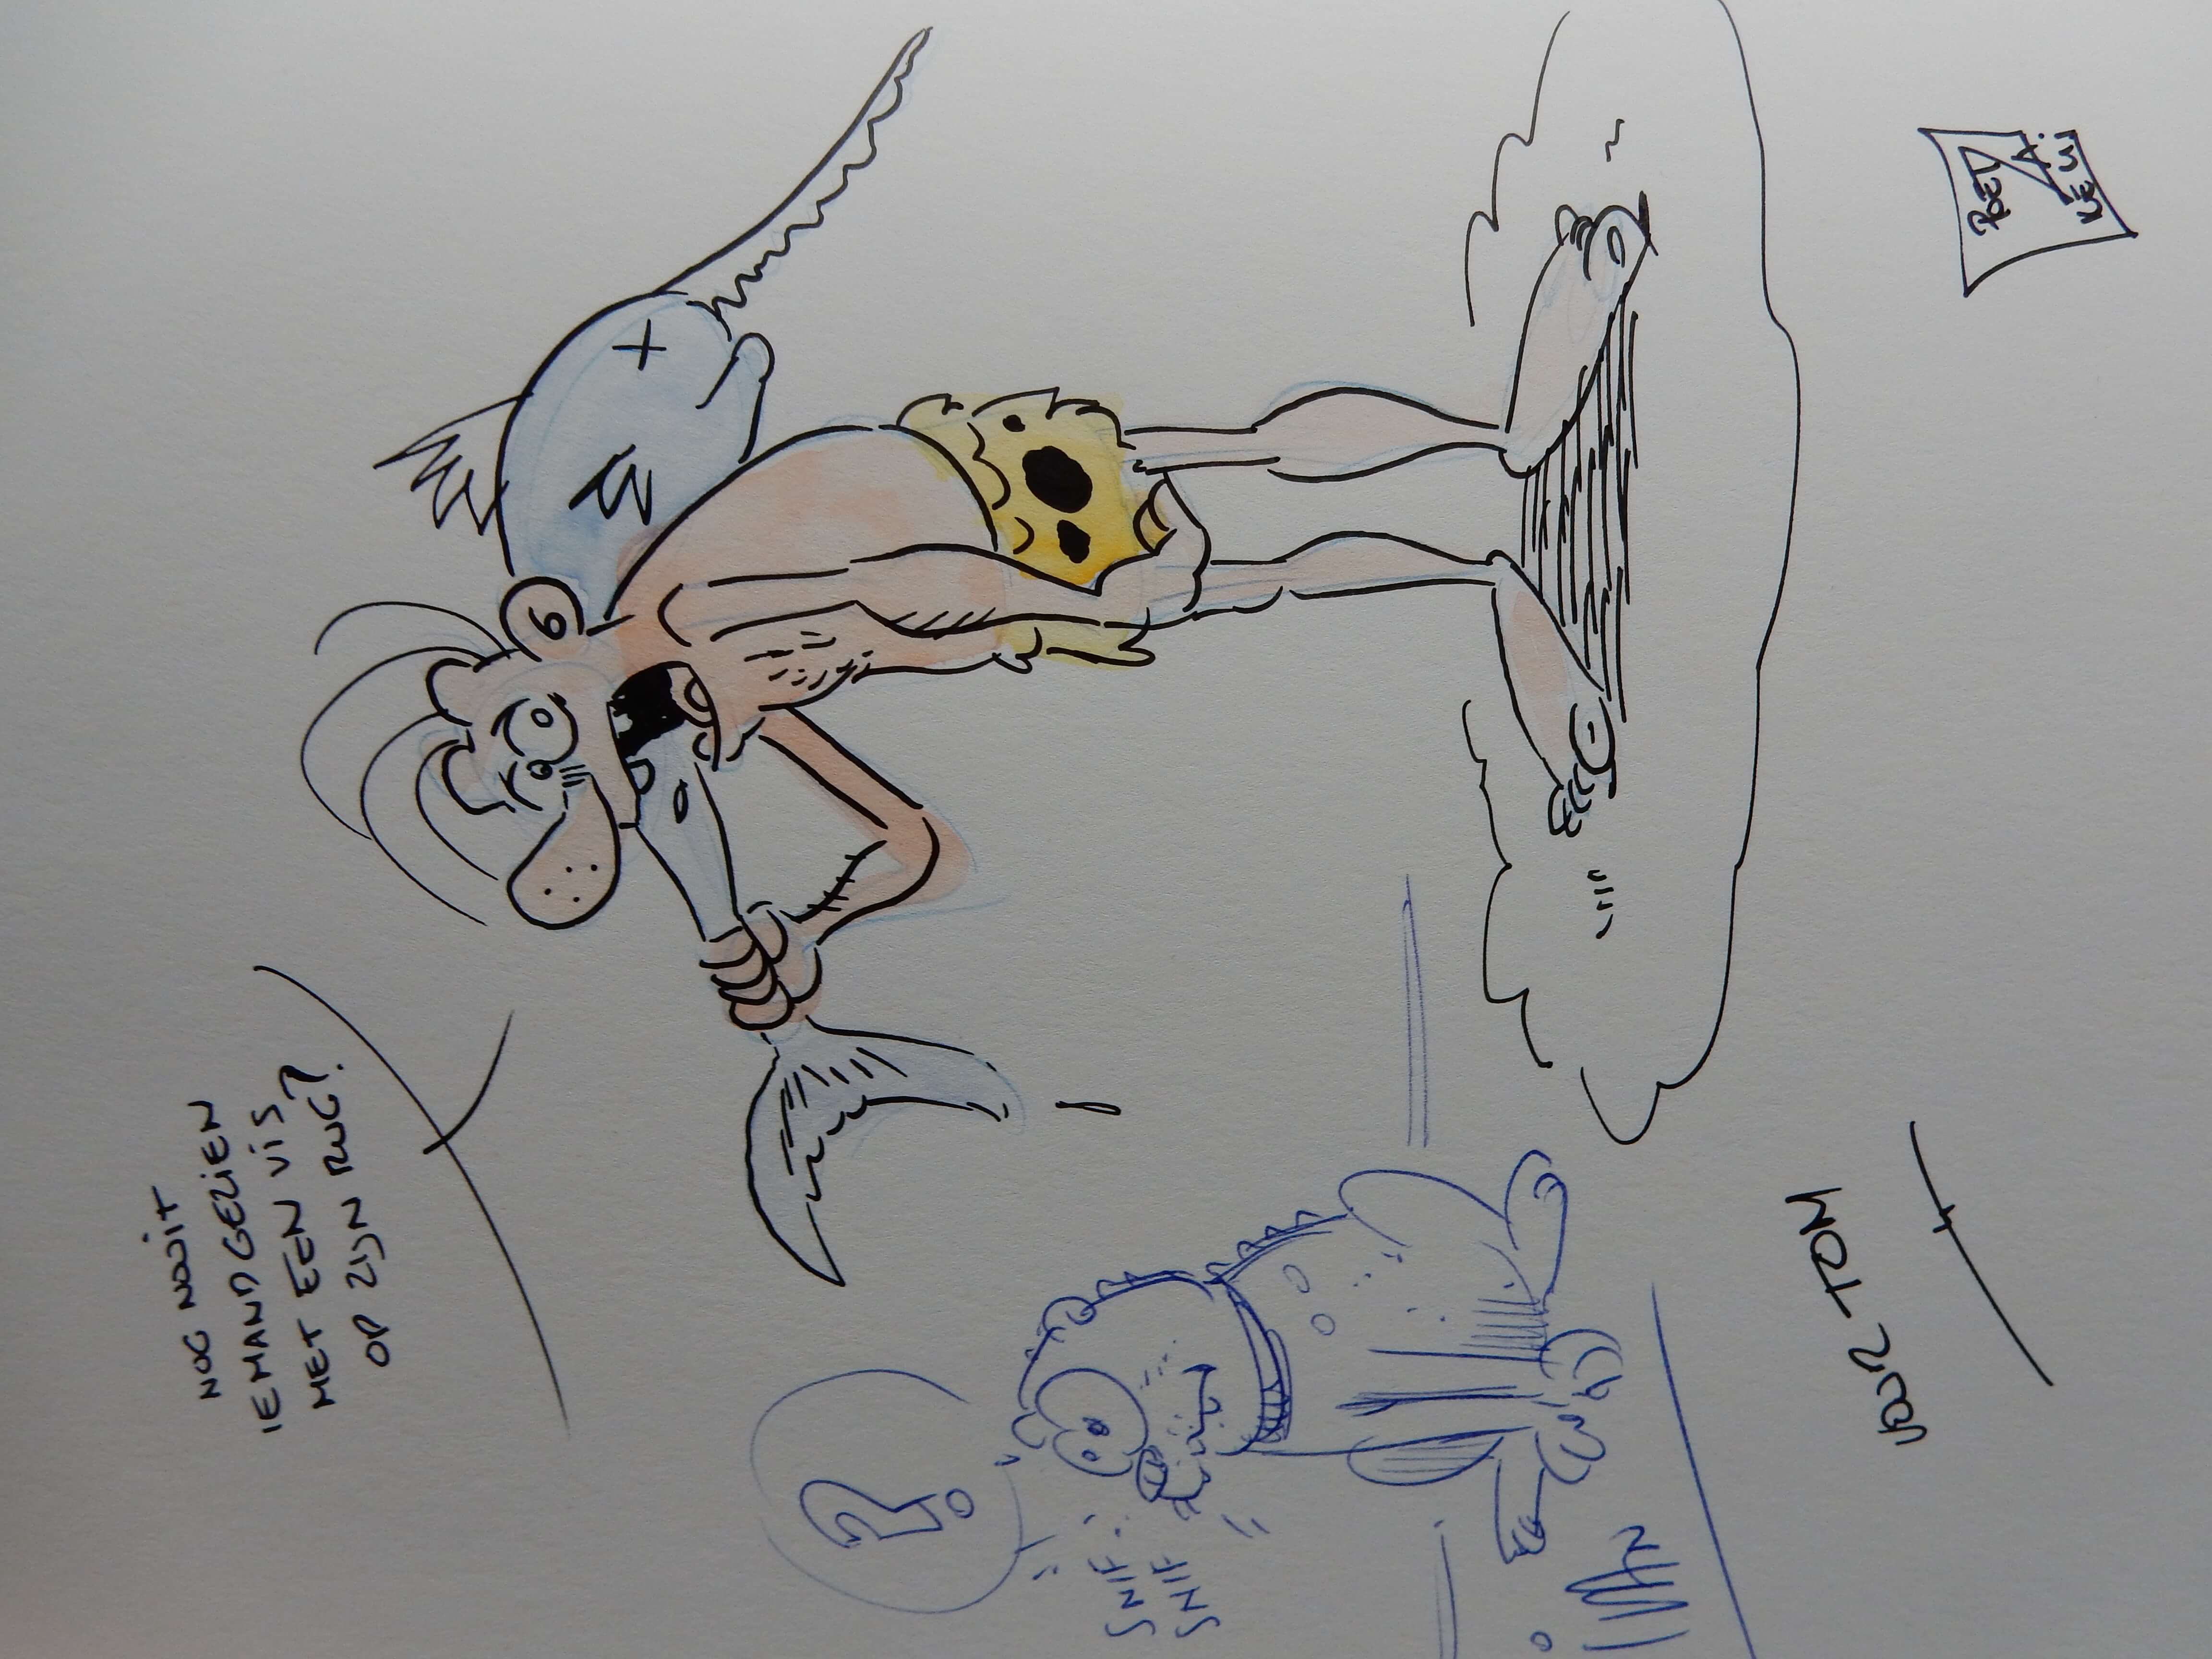 NOG NOOIT
IEMAND GEZIEN
MET EEN VIS
OP ZIJN RUG?
?
SNIF
SNIF
IVAN
VOOR TOM